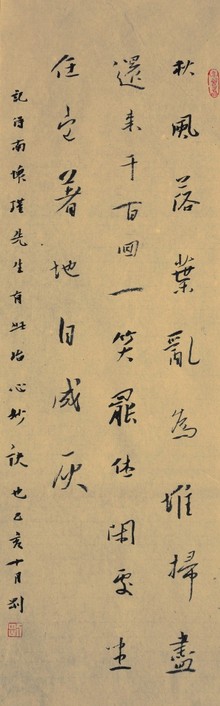 秋風落葉亂為堆掃盡
還來千百回一笑罷休閑處坐
任它著地自成灰
記得南懷瑾先生有此治心妙訣也己亥十月